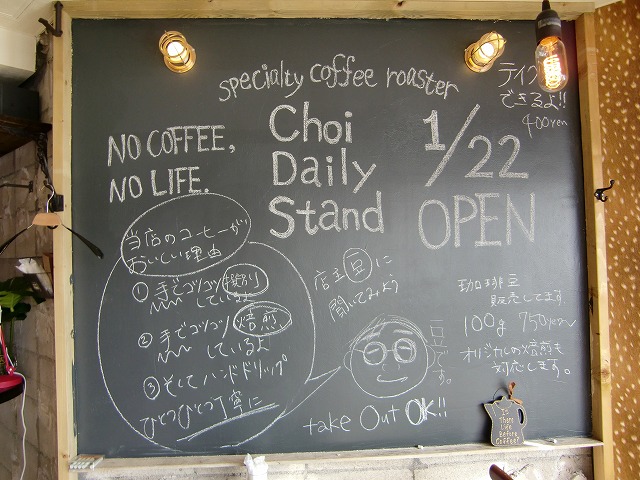 specialty coffee roaster
Choi
Daily
Stand
1/22
OPEN
NO COFFEE,
NO LIFE.
テイク
できるよ!!
400yen
当店のコーヒーが
おいしい理由
① 手でコツコツ 選別り
しているよ
② 手でコツコツ 焙煎
しているよ
③ そしてハンドドリップ
ひとつひとつ丁寧に
店主豆に
聞いてみよう
豆です。
take Out OK!!
珈琲豆
販売してます
100g 750yen
オリジナルの焙煎も
対応します。
Is
there
life
Before
Coffee?